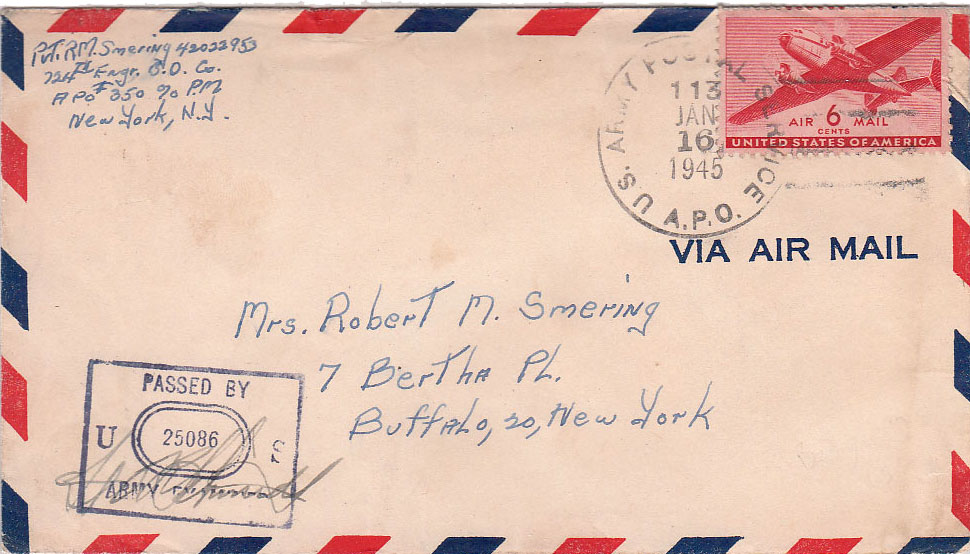 Pvt. R.M. Smering 42022953
724th Engr. B.D. Co.
APO #350 % P.M
New York, N.Y.
U.S. ARMY POSTAL SERVICE
113
JAN
16
1945
A.P.O.
AIR 6 MAIL
CENTS
UNITED STATES OF AMERICA
VIA AIR MAIL
Mrs. Robert M. Smering
7 Bertha PL.
Buffalo, 20, New York
PASSED BY
U 25086 S
ARMY